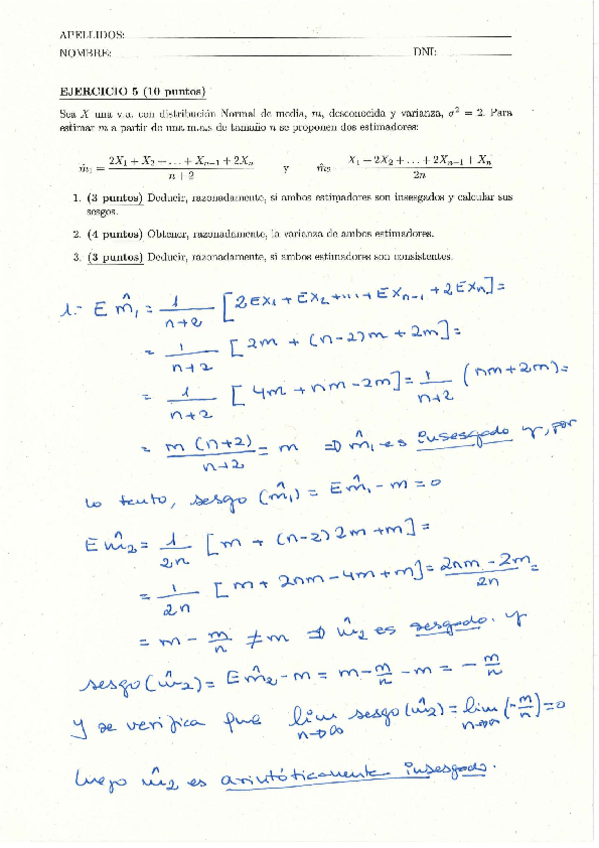 APELLIDOS:
NOMBRE: DNI:
EJERCICIO 5 (10 puntos)
Sea X una v.a. con distribución Normal de media, m, desconocida y varianza, σ² = 2. Para
estimar m a partir de una m.a.s de tamaño n se proponen dos estimadores:
m̂₁ = (2X₁ + X₂ + … + Xₙ₋₁ + 2Xₙ)/(n + 2) y m̂₂ = (X₁ + 2X₂ + … + 2Xₙ₋₁ + Xₙ)/2n
1. (3 puntos) Deducir, razonadamente, si ambos estimadores son insesgados y calcular sus
sesgos.
2. (4 puntos) Obtener, razonadamente, la varianza de ambos estimadores.
3. (3 puntos) Deducir, razonadamente, si ambos estimadores son consistentes.
1.- E m̂₁ = 1/(n+2) [2EX₁ + EX₂ + ... + EXₙ₋₁ + 2EXₙ] =
= 1/(n+2) [2m + (n-2)m + 2m] =
= 1/(n+2) [4m + nm - 2m] = 1/(n+2) (nm + 2m) =
= m(n+2)/(n+2) = m ⇒ m̂₁ es insesgado y, por
lo tanto, sesgo (m̂₁) = E m̂₁ - m = 0
E m̂₂ = 1/2n [m + (n-2)2m + m] =
= 1/2n [m + 2nm - 4m + m] = (2nm - 2m)/2n =
= m - m/n ≠ m ⇒ m̂₂ es sesgado. y
sesgo(m̂₂) = E m̂₂ - m = m - m/n - m = - m/n
Y se verifica que lim n→∞ sesgo(m̂₂) = lim n→∞ (-m/n) = 0
luego m̂₂ es asintóticamente insesgado.